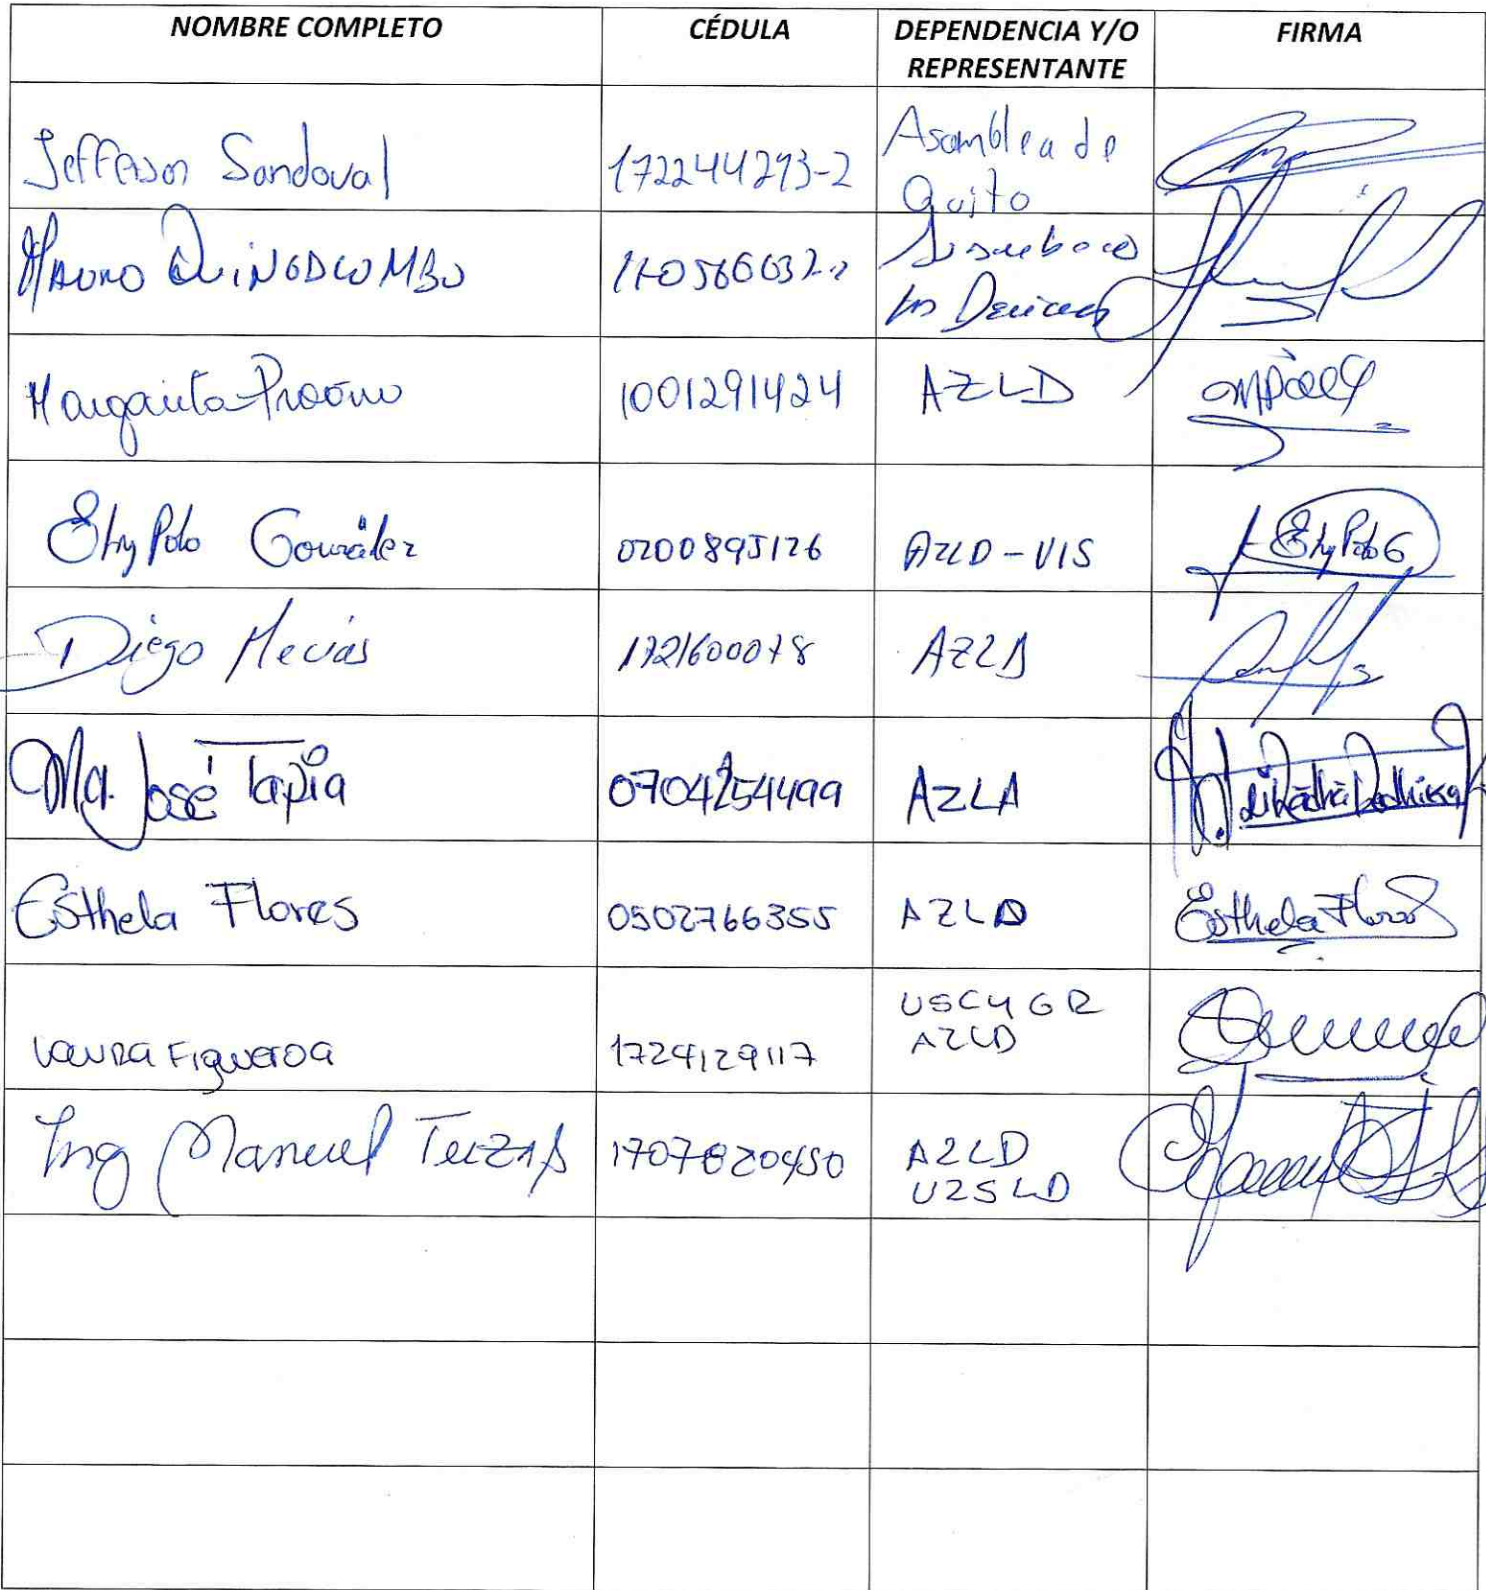 NOMBRE COMPLETO CÉDULA DEPENDENCIA Y/O REPRESENTANTE FIRMA
Jefferson Sandoval 172244293-2 Asamblea de Quito
Mauro
Margarita Proaño 1001291424 AZLD
Ety Polo González 0200895126 AZLD - VIS Ety Polo G
Diego Mecías 1721600078 AZLD
Ma. José Tapia 0704254499 AZLA
Esthela Flores 0502766355 AZLD Esthela Flores
Laura Figueroa 1724129117 USCYGR AZLD
Ing Manuel 1707820450 AZLD UZSLD